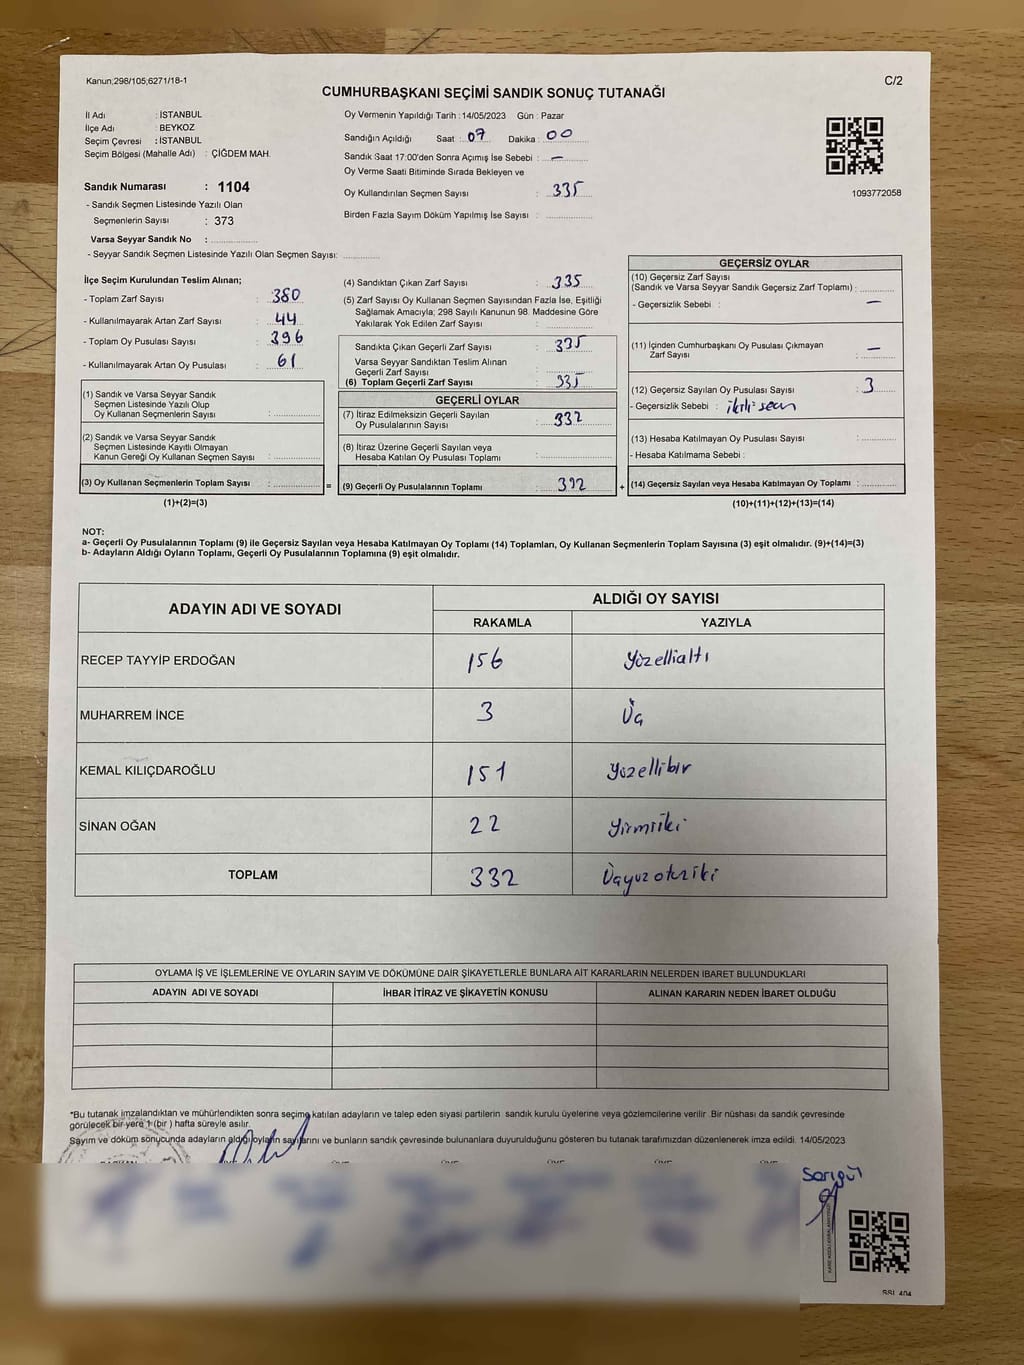 Kanun;298/105,6271/18-1
C/2
CUMHURBAŞKANI SEÇİMİ SANDIK SONUÇ TUTANAĞI
İl Adı : İSTANBUL
İlçe Adı : BEYKOZ
Seçim Çevresi : İSTANBUL
Seçim Bölgesi (Mahalle Adı) : ÇİĞDEM MAH.
Sandık Numarası : 1104
- Sandık Seçmen Listesinde Yazılı Olan
Seçmenlerin Sayısı : 373
Varsa Seyyar Sandık No :
- Seyyar Sandık Seçmen Listesinde Yazılı Olan Seçmen Sayısı:
Oy Vermenin Yapıldığı Tarih : 14/05/2023 Gün : Pazar
Sandığın Açıldığı Saat : 07 Dakika : 00
Sandık Saat 17:00'den Sonra Açımış İse Sebebi : —
Oy Verme Saati Bitiminde Sırada Bekleyen ve
Oy Kullandırılan Seçmen Sayısı : 335
Birden Fazla Sayım Döküm Yapılmış İse Sayısı :
1093772058
İlçe Seçim Kurulundan Teslim Alınan;
- Toplam Zarf Sayısı : 380
- Kullanılmayarak Artan Zarf Sayısı : 44
- Toplam Oy Pusulası Sayısı : 396
- Kullanılmayarak Artan Oy Pusulası : 61
(1) Sandık ve Varsa Seyyar Sandık
Seçmen Listesinde Yazılı Olup
Oy Kullanan Seçmenlerin Sayısı :
(2) Sandık ve Varsa Seyyar Sandık
Seçmen Listesinde Kayıtlı Olmayan
Kanun Gereği Oy Kullanan Seçmen Sayısı :
(3) Oy Kullanan Seçmenlerin Toplam Sayısı :
(1)+(2)=(3)
(4) Sandıktan Çıkan Zarf Sayısı : 335
(5) Zarf Sayısı Oy Kullanan Seçmen Sayısından Fazla İse, Eşitliği
Sağlamak Amacıyla; 298 Sayılı Kanunun 98. Maddesine Göre
Yakılarak Yok Edilen Zarf Sayısı :
Sandıkta Çıkan Geçerli Zarf Sayısı : 335
Varsa Seyyar Sandıktan Teslim Alınan
Geçerli Zarf Sayısı :
(6) Toplam Geçerli Zarf Sayısı : 335
GEÇERLİ OYLAR
(7) İtiraz Edilmeksizin Geçerli Sayılan
Oy Pusulalarının Sayısı : 332
(8) İtiraz Üzerine Geçerli Sayılan veya
Hesaba Katılan Oy Pusulası Toplamı :
= (9) Geçerli Oy Pusulalarının Toplamı : 332 +
GEÇERSİZ OYLAR
(10) Geçersiz Zarf Sayısı
(Sandık ve Varsa Seyyar Sandık Geçersiz Zarf Toplamı) :
- Geçersizlik Sebebi : —
(11) İçinden Cumhurbaşkanı Oy Pusulası Çıkmayan
Zarf Sayısı : —
(12) Geçersiz Sayılan Oy Pusulası Sayısı : 3
- Geçersizlik Sebebi :
(13) Hesaba Katılmayan Oy Pusulası Sayısı :
- Hesaba Katılmama Sebebi :
(14) Geçersiz Sayılan veya Hesaba Katılmayan Oy Toplamı :
(10)+(11)+(12)+(13)=(14)
NOT:
a- Geçerli Oy Pusulalarının Toplamı (9) ile Geçersiz Sayılan veya Hesaba Katılmayan Oy Toplamı (14) Toplamları, Oy Kullanan Seçmenlerin Toplam Sayısına (3) eşit olmalıdır. (9)+(14)=(3)
b- Adayların Aldığı Oyların Toplamı, Geçerli Oy Pusulalarının Toplamına (9) eşit olmalıdır.
ADAYIN ADI VE SOYADI ALDIĞI OY SAYISI
RAKAMLA YAZIYLA
RECEP TAYYİP ERDOĞAN 156 Yüzellialtı
MUHARREM İNCE 3 Üç
KEMAL KILIÇDAROĞLU 151 Yüzellibir
SİNAN OĞAN 22 Yirmiiki
TOPLAM 332 Üçyüzotuziki
OYLAMA İŞ VE İŞLEMLERİNE VE OYLARIN SAYIM VE DÖKÜMÜNE DAİR ŞİKAYETLERLE BUNLARA AİT KARARLARIN NELERDEN İBARET BULUNDUKLARI
ADAYIN ADI VE SOYADI İHBAR İTİRAZ VE ŞİKAYETİN KONUSU ALINAN KARARIN NEDEN İBARET OLDUĞU
*Bu tutanak imzalandıktan ve mühürlendikten sonra seçime katılan adayların ve talep eden siyasi partilerin sandık kurulu üyelerine veya gözlemcilerine verilir. Bir nüshası da sandık çevresinde
görülecek bir yere 1 (bir) hafta süreyle asılır.
Sayım ve döküm sonucunda adayların aldığı oyların sayılarını ve bunların sandık çevresinde bulunanlara duyurulduğunu gösteren bu tutanak tarafımızdan düzenlenerek imza edildi. 14/05/2023
Sarıgül